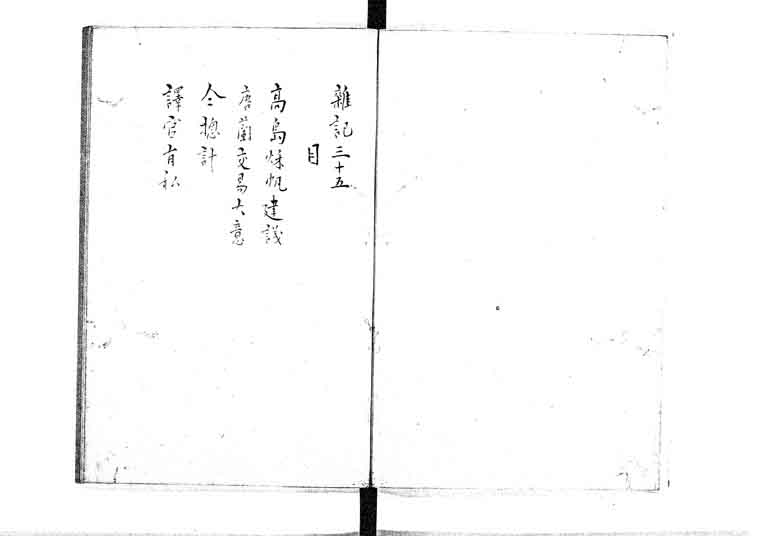 雜記三十五
目
高島秌帆建議
唐蘭交易大意
仝摠計
譯官有私